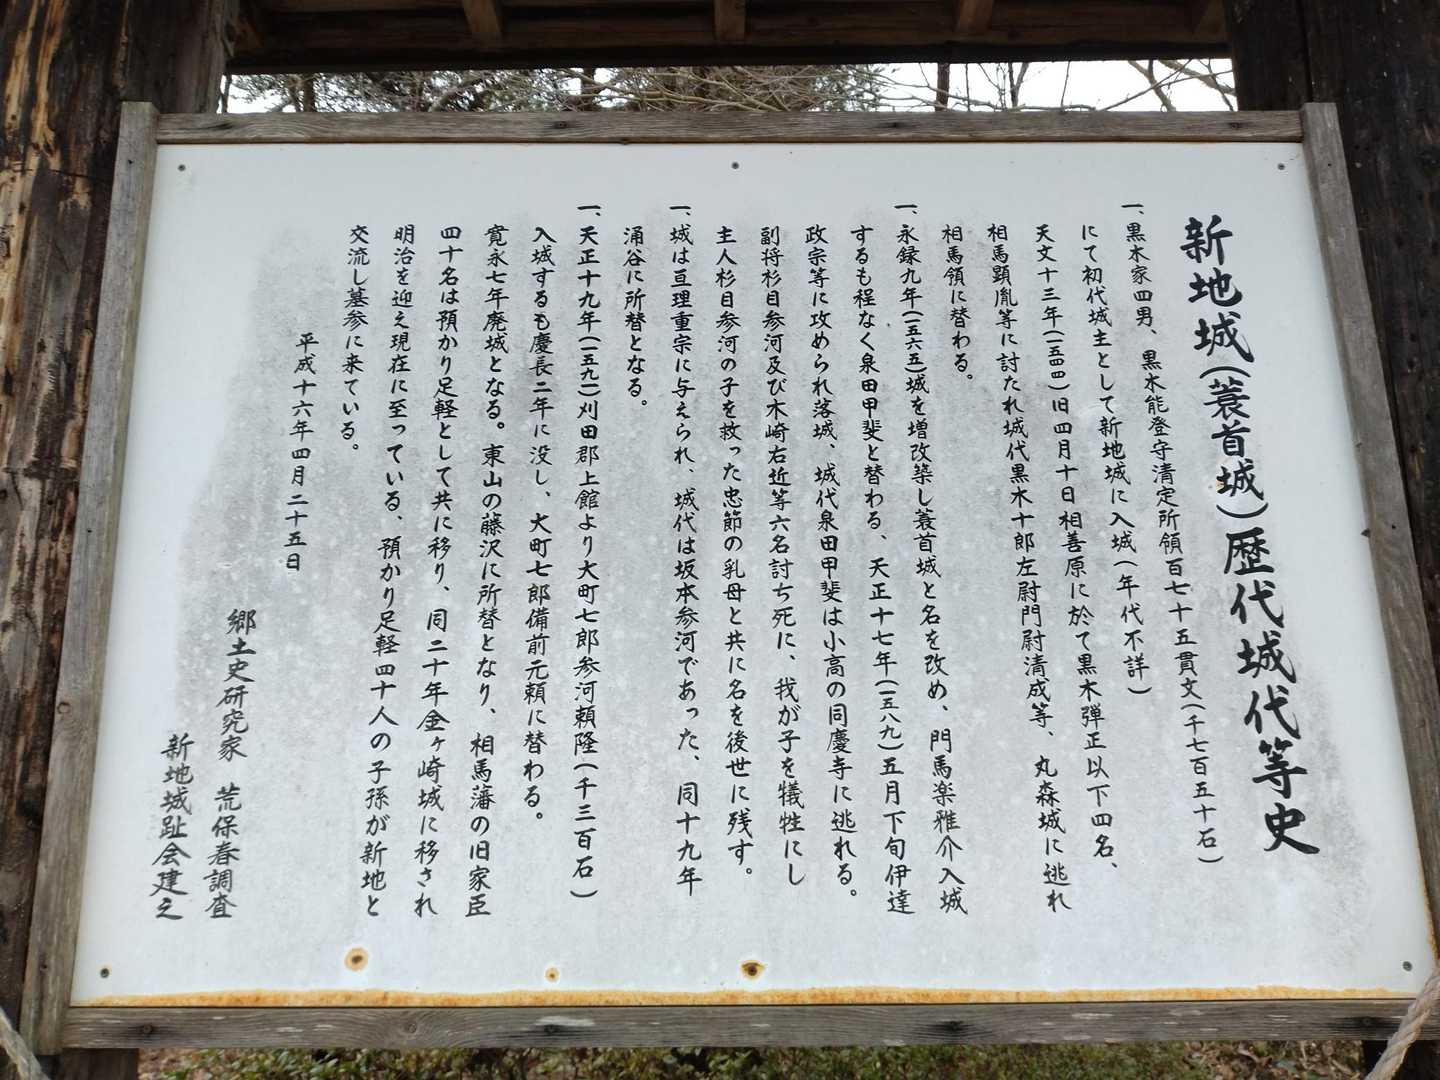 新地城(蓑首城)歴代城代等史
一、黒木家四男、黒木能登守清定所領百七十五貫文(千七百五十石)
にて初代城主として新地城に入城(年代不詳)
天文十三年(一五四四)旧四月十日相善原に於て黒木弾正以下四名、
相馬顕胤等に討たれ城代黒木十郎左尉門尉清成等、丸森城に逃れ
相馬領に替わる。
一、永録九年(一五六五)城を増改築し蓑首城と名を改め、門馬楽雅介入城
するも程なく泉田甲斐と替わる、天正十七年(一五八九)五月下旬伊達
政宗等に攻められ落城、城代泉田甲斐は小高の同慶寺に逃れる。
副将杉目参河及び木崎右近等六名討ち死に、我が子を犠牲にし
主人杉目参河の子を救った忠節の乳母と共に名を後世に残す。
一、城は亘理重宗に与えられ、城代は坂本参河であった、同十九年
涌谷に所替となる。
一、天正十九年(一五九一)刈田郡上館より大町七郎参河頼隆(千三百石)
入城するも慶長二年に没し、大町七郎備前元頼に替わる。
寛永七年廃城となる。東山の藤沢に所替となり、相馬藩の旧家臣
四十名は預かり足軽として共に移り、同二十年金ヶ崎城に移され
明治を迎え現在に至っている、預かり足軽四十人の子孫が新地と
交流し墓参に来ている。
平成十六年四月二十五日
郷土史研究家 荒保春調査
新地城趾会建之